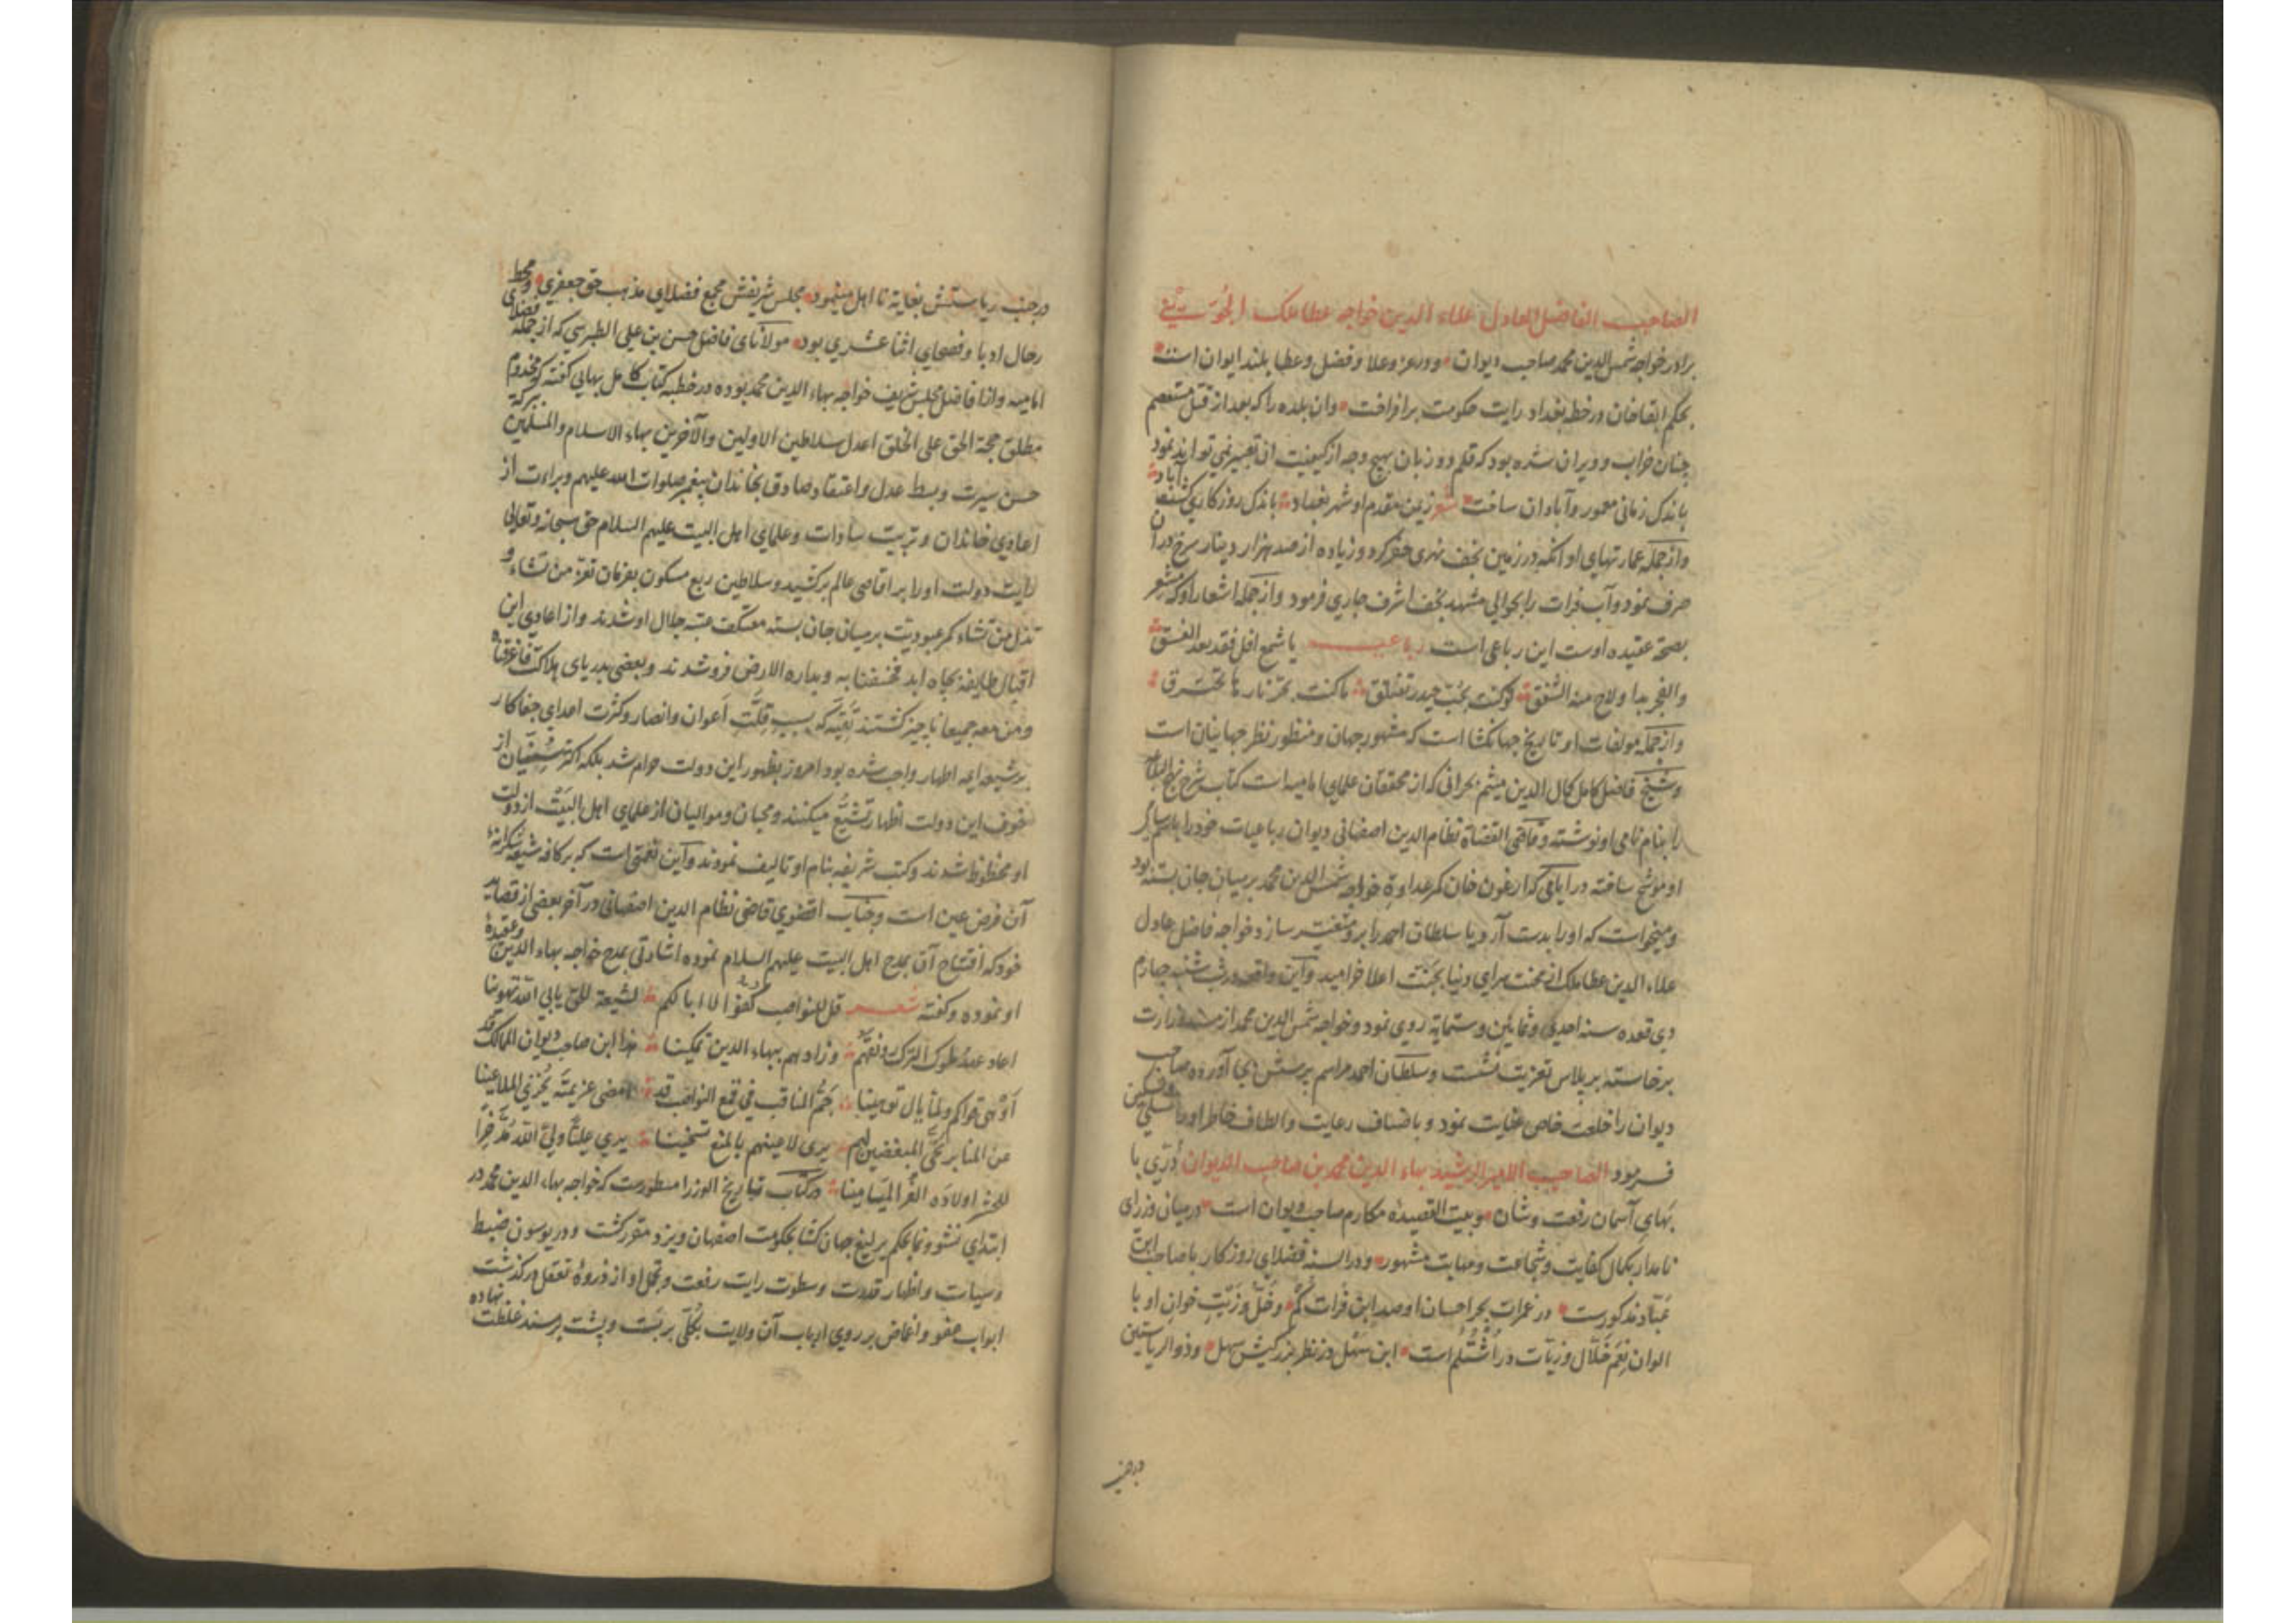 الصاحب الفاضل العادل علاء الدین خواجه عطا ملک الجوینی
برادر خواجه شمس الدین محمد صاحب دیوان و در عز و علا و فضل و عطا بلند ایوان است
بحکم ابقا خان در خطه بغداد رایت حکومت برافراخت وان بلده را که بعد از قتل مستعصم
چنان خراب و ویران شده بود که قلم دو زبان بهیچ وجه از کیفیت ان تعبیر نمی تواند نمود
باندک زمانی معمور و آبادان ساخت شعر زیمن مقدم او شهر بغداد باندک روزکاری کشت آباد
و از جمله عمارتهای او انکه در زمین نجف نهری حفر کرد و زیاده از صد هزار دینار سرخ در ان
صرف نمود و آب فرات را بحوالی مشهد نجف اشرف جاری فرمود و از جمله اشعار او که مشعر
بصحة عقیده اوست این رباعی است رباعیه یا شمع افل فقد بعد الغسق
والفجر بدا ولاح منه الشفق لو کنت بحب حیدر تعتلق ما کنت بحر نار ها تحترق
و از جمله مولفات او تاریخ جهانکشا است که مشهور جهان و منظور نظر جهانیان است
و شیخ فاضل کامل کمال الدین میثم بحرانی که از محققان علمای امامیه است کتاب شرح نهج البلاغه
را بنام نامی او نوشته و قاضی القضاة نظام الدین اصفهانی دیوان رباعیات خود را باسم سامی
او موشح ساخته در ایامی که ارغون خان کمر عداوة خواجه شمس الدین محمد بر میان جان بسته بود
و میخواست که او را بدست آرد یا سلطان احمد را برو متغیر سازد خواجه فاضل عادل
علاء الدین عطا ملک از محنت سرای دنیا بجنت اعلا خرامید و این واقعه در شب شنبه چهارم
ذی قعده سنه احدی و ثمانین و ستمایة روی نمود و خواجه شمس الدین محمد از مسند وزارت
برخاسته بر پلاس تعزیت نشست و سلطان احمد مراسم پرسش بجا آورده صاحب
دیوان را خلعت خاص عنایت نمود و باصناف رعایت و الطاف خاطر او را تسلی و تسکین
فرمود الصاحب الامیر الرشید بهاء الدین محمد بن صاحب الدیوان دری با
بهای آسمان رفعت و شان و بیت القصیده مکارم صاحب دیوان است در میان وزرای
نامدار بکمال کفایت و شجاعت و مهابت مشهور و در السنه فضلای روزکار با صاحب ابن
عباد مذکورست در غمرات بحر احسان او صد ابن فرات کم و خل و زیت خوان او با
الوان نعم خلال و زیات در اشتلم است ابن سهل در نظر بزرکیش سهل و ذو الریاستین
در جنب
در جنب ریاستش بغایة نا اهل مینمود مجلس شریفش مجمع فضلای مذهب حق جعفری و محط
رحال ادبا و فصحای اثنا عشری بود مولانای فاضل حسن بن علی الطبرسی که از جمله فضلای
امامیه و از افاضل مجلس شریف خواجه بهاء الدین محمد بوده در خطبه کتاب کامل بهائی کفته که مخدوم
مطلق حجة الحق علی الخلق اعدل سلاطین الاولین والآخرین بهاء الاسلام والمسلمین ببرکة
حسن سیرت و بسط عدل و اعتقاد صادق بخاندان پیغمبر صلوات الله علیهم و براءت از
اعادی خاندان و تربیت سادات و علمای اهل البیت علیهم السلام حق سبحانه و تعالی
رایت دولت او را بر اقاصی عالم برکشید و سلاطین ربع مسکون بفرمان تعز من تشاء و
تذل من تشاء کمر عبودیت بر میان جان بسته معتکف عتبه جلال او شدند و از اعادی این
اقبال طایفة بچاه ابد فخسفنا به و بداره الارض فرو شدند و بعضی بدریای هلاکت فاغرقناه
و من معه جمیعا ناچیز کشتند تقیه که بسبب قلت اعوان و انصار و کثرت اعدای جفاکار
بر شیعه ایمه اطهار واجب شده بود امروز بظهور این دولت حرام شد بلکه اکثر سنیان از
خوف این دولت اظهار تشیع میکنند و محبان و موالیان از علمای اهل البیت از دولت
او محظوظ شدند و کتب شریفه بنام او تالیف نمودند و این نعمتی است که بر کافه شیعه شکرانهٔ
آن فرض عین است و جناب اقضوی قاضی نظام الدین اصفهانی در آخر بعضی از قصاید
خود که افتتاح آن بمدح اهل البیت علیهم السلام نموده اشارتی بمدح خواجه بهاء الدین و عقیدهٔ
او نموده و کفته شعر قل للنواصب کفوا لا ابا لکم لشیعة الحق یابی الله تهوینا
اعاد عهد ملوک الترک رونقهم و زادهم ببهاء الدین تمکینا هذا ابن صاحب دیوان الممالک قد
جم المناقب فی قمع النواصب قد امضی عزیمته یخزی الملاعینا
عن المنابر نحی المبغضین لهم یری لاعینهم بالمنع تسخینا یری علیا ولی الله مدخرا
اولاده الغر المیامینا در کتاب تباریخ الوزرا مسطورست که خواجه بهاء الدین محمد در
ابتدای نشو و نما بحکم یرلیغ جهان کشا بحکومت اصفهان و یزد مقرر کشت و در یوسون ضبط
و سیاست و اظهار قدرت و سطوت رایت رفعت و تحمل او از ذروهٔ تعقل درکذشت
ابواب عفو و اغماض بر روی ارباب آن ولایت بکلی بربست و پشت بر مسند غلظت نهاده